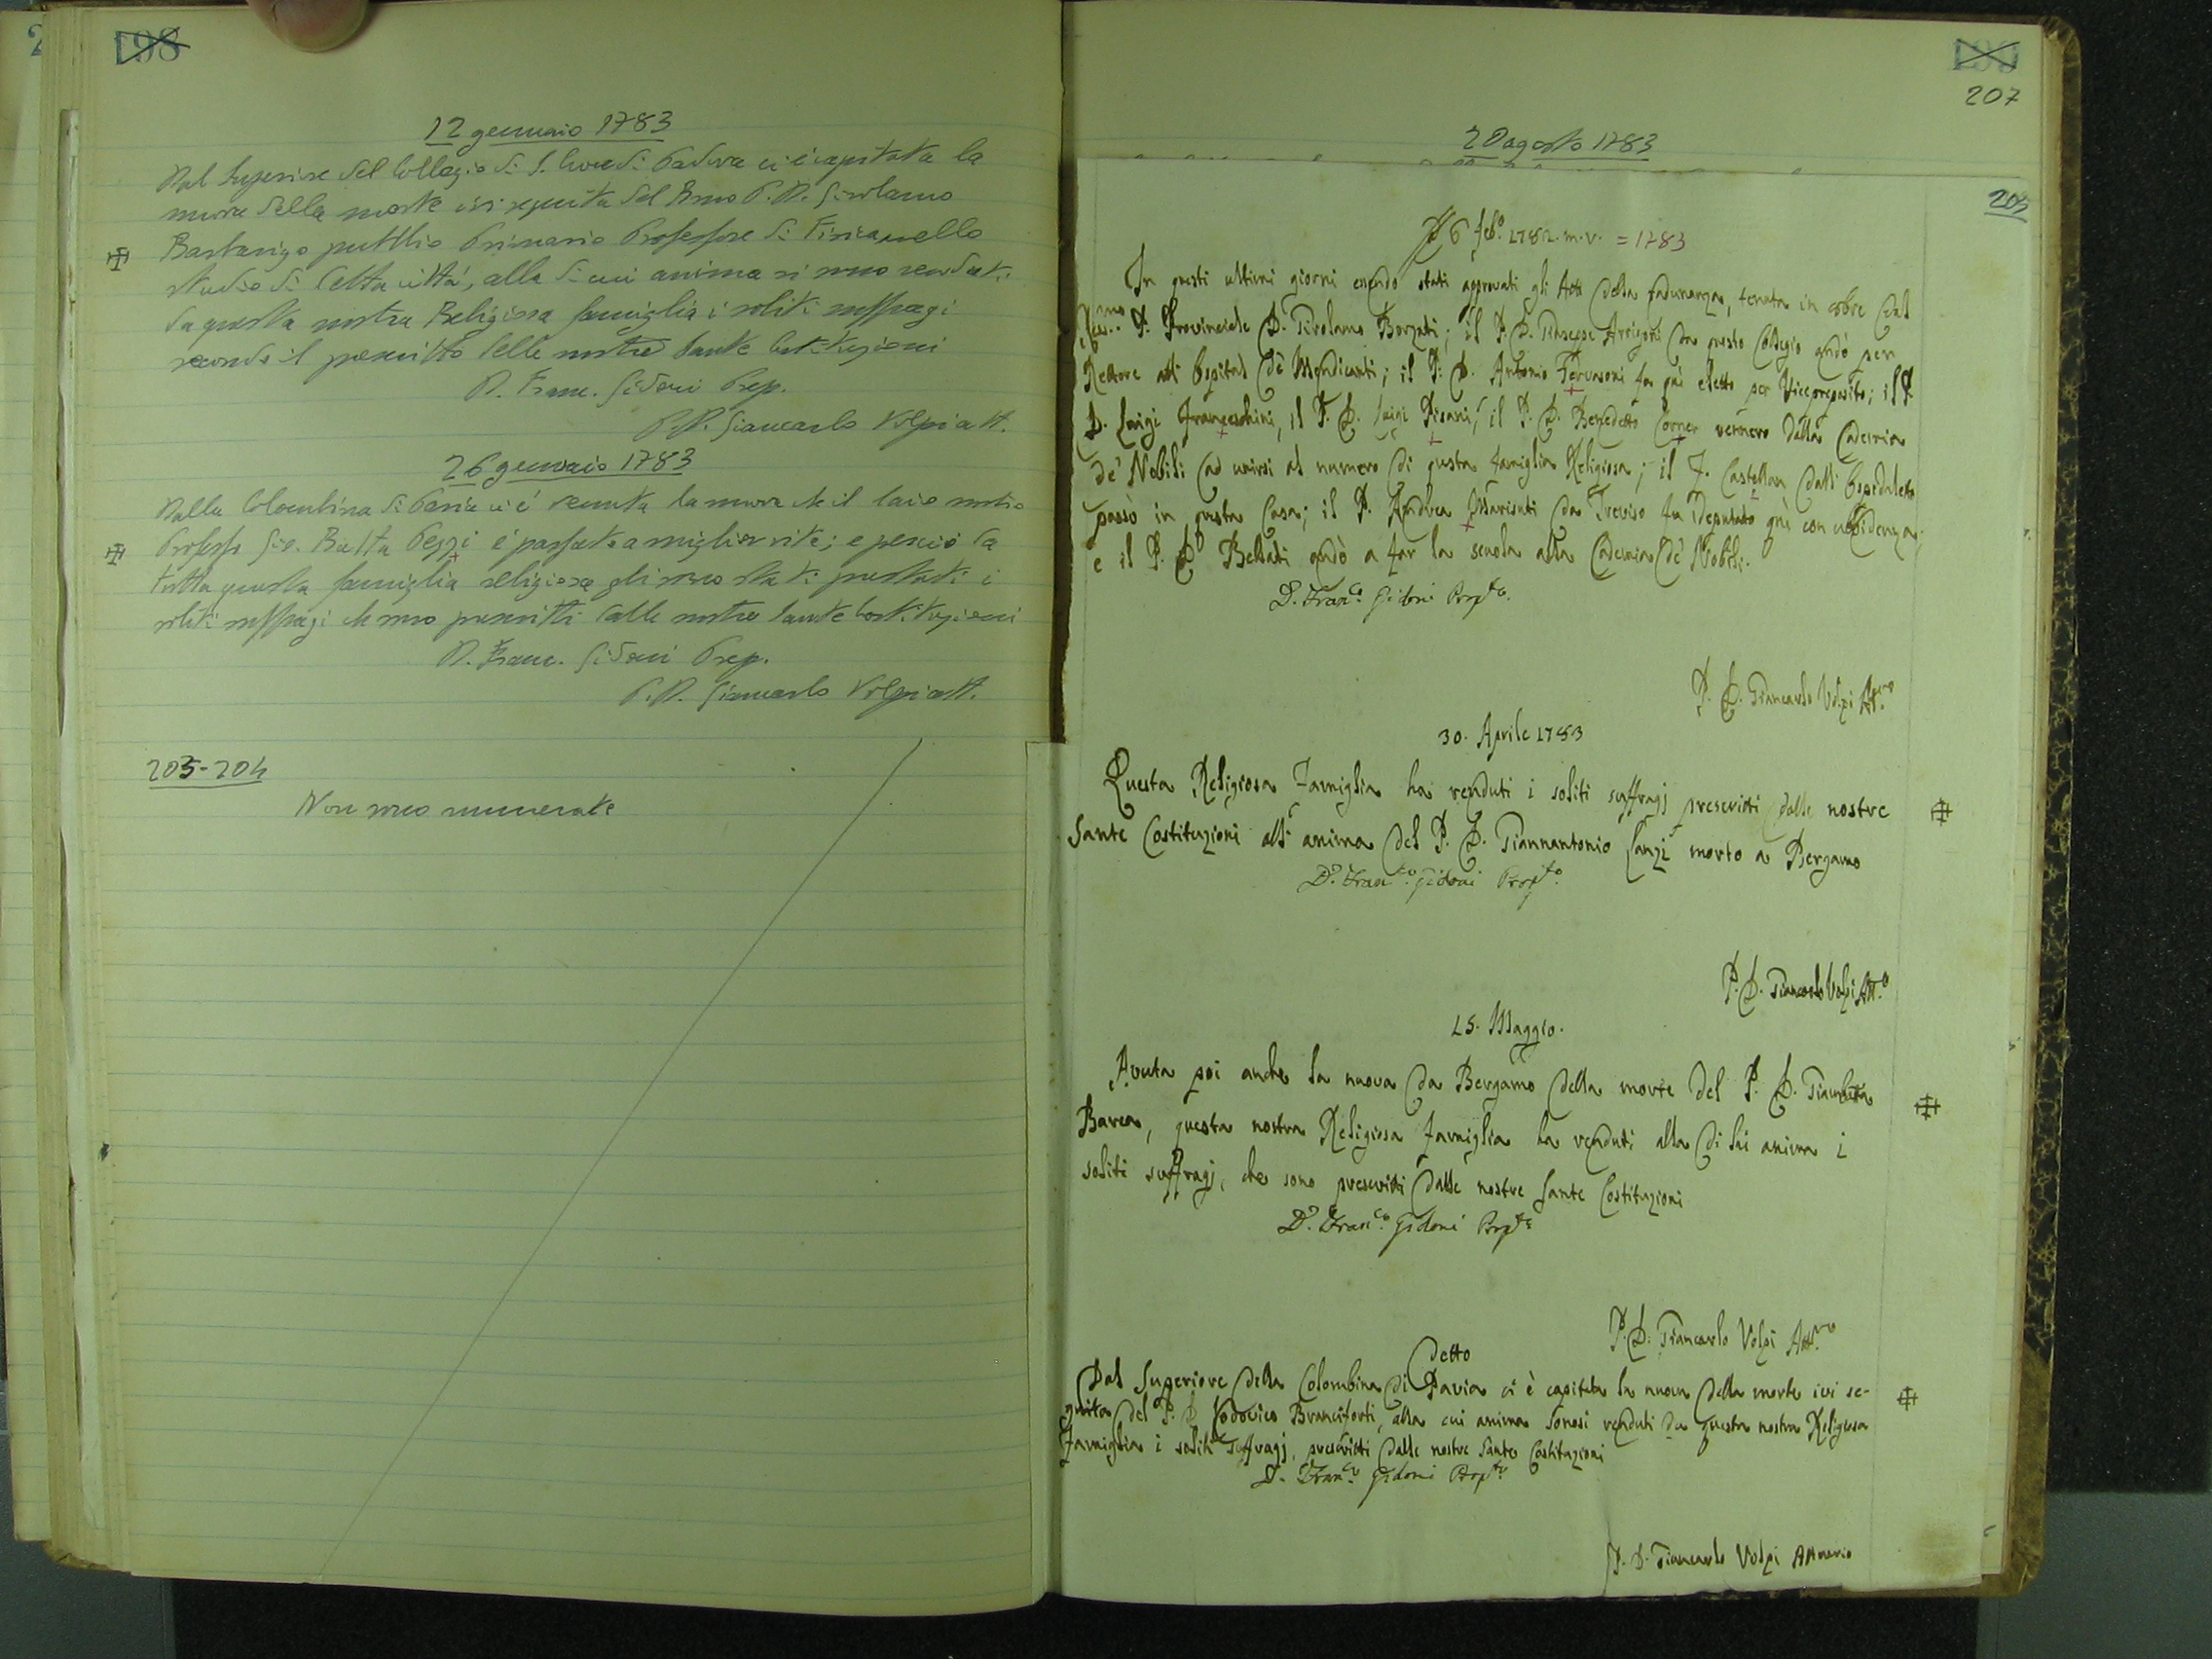 198
12 gennaio 1783
Dal Superiore del Collegio di S. Croce di Padova ci è capitata la
nuova della morte ivi seguita del Rmo P. D. Girolamo
Barbarigo pubblico Primario Professore di Fisica nello
studio di detta città, alla di cui anima si sono renduti
da questa nostra Religiosa famiglia i soliti suffragi
secondo il prescritto delle nostre Sante Costituzioni
D. Franc. Gidoni Prep.
P. D. Giancarlo Volpi att.
26 gennaio 1783
Dalla Colombina di Pavia ci è venuta la nuova che il laico nostro
Professo Gio. Batta Pezzi è passato a miglior vita; e perciò da
tutta questa famiglia religiosa gli sono stati prestati i
soliti suffragi che sono prescritti dalle nostre Sante Costituzioni
D. Franc. Gidoni Prep.
P. D. Giancarlo Volpi att.
203-204
Non sono numerate
199
207
20 agosto 1783
205
6 Feb.o 1782. m.v. = 1783
In questi ultimi giorni essendo stati approvati gli Atti della radunanza, tenuta in dal
Rev.mo P. Provinciale D. Girolamo Borzati; il P. D. Giuseppe Arrigoni da questo Collegio andò per
Rettore all' Ospital de' Mendicanti; il P. D. Antonio Fervasoni fu qui eletto per Vicepreposito; il P.
D. Luigi Franceschini, il P. D. Luigi Pisani, il P. D. Benedetto Corner vennero dalla Cademia
de' Nobili ad unirsi al numero di questa famiglia Religiosa; il F. Castellan dall' Ospedaletto
passò in questa Casa; il P. Andrea Marisuti da Treviso fu Deputato qui con ubbidenza;
e il P. D. Bellati andò a far la scuola alla Cademia de' Nobili.
D. Fran.co Gidoni Prep.to
P. D. Giancarlo Volpi Att.rio
30. Aprile 1783
Questa Religiosa Famiglia ha renduti i soliti suffragj prescritti dalle nostre
Sante Costituzioni all' anima del P. D. Giannantonio Lanzi morto a Bergamo
D. Fran.co Gidoni Prep.to
P. D. Giancarlo Volpi Att.o
15. Maggio.
Avuta poi anche la nuova da Bergamo della morte del P. D. Giambatta
Barca, questa nostra Religiosa Famiglia ha renduti alla di lui anima i
soliti suffragj, che sono prescritti dalle nostre Sante Costituzioni
D. Fran.co Gidoni Prep.to
P. D. Giancarlo Volpi Att.rio
Detto
Dal Superiore della Colombina di Pavia ci è capitata la nuova della morte ivi se-
guita del P. D. Lodovico Branciforti, alla cui anima sonosi renduti da questa nostra Religiosa
Famiglia i soliti suffragj, prescritti dalle nostre Sante Costituzioni
D. Fran.co Gidoni Prep.to
P. D. Giancarlo Volpi Attuario